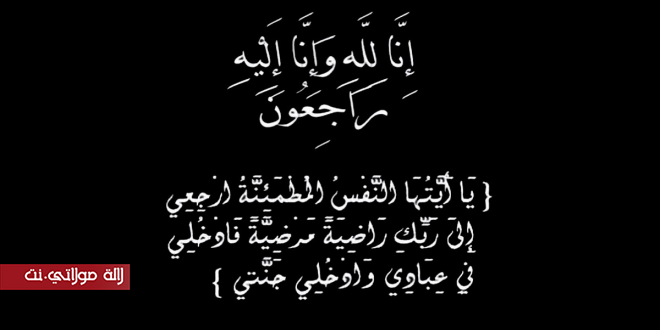 إِنَّا لِلَّهِ وَإِنَّا إِلَيْهِ
رَاجِعُونَ
{ يَا أَيَّتُهَا النَّفْسُ الْمُطْمَئِنَّةُ ارْجِعِي
إِلَى رَبِّكِ رَاضِيَةً مَرْضِيَّةً فَادْخُلِي
فِي عِبَادِي وَادْخُلِي جَنَّتِي }
لالة مولاتي.نت